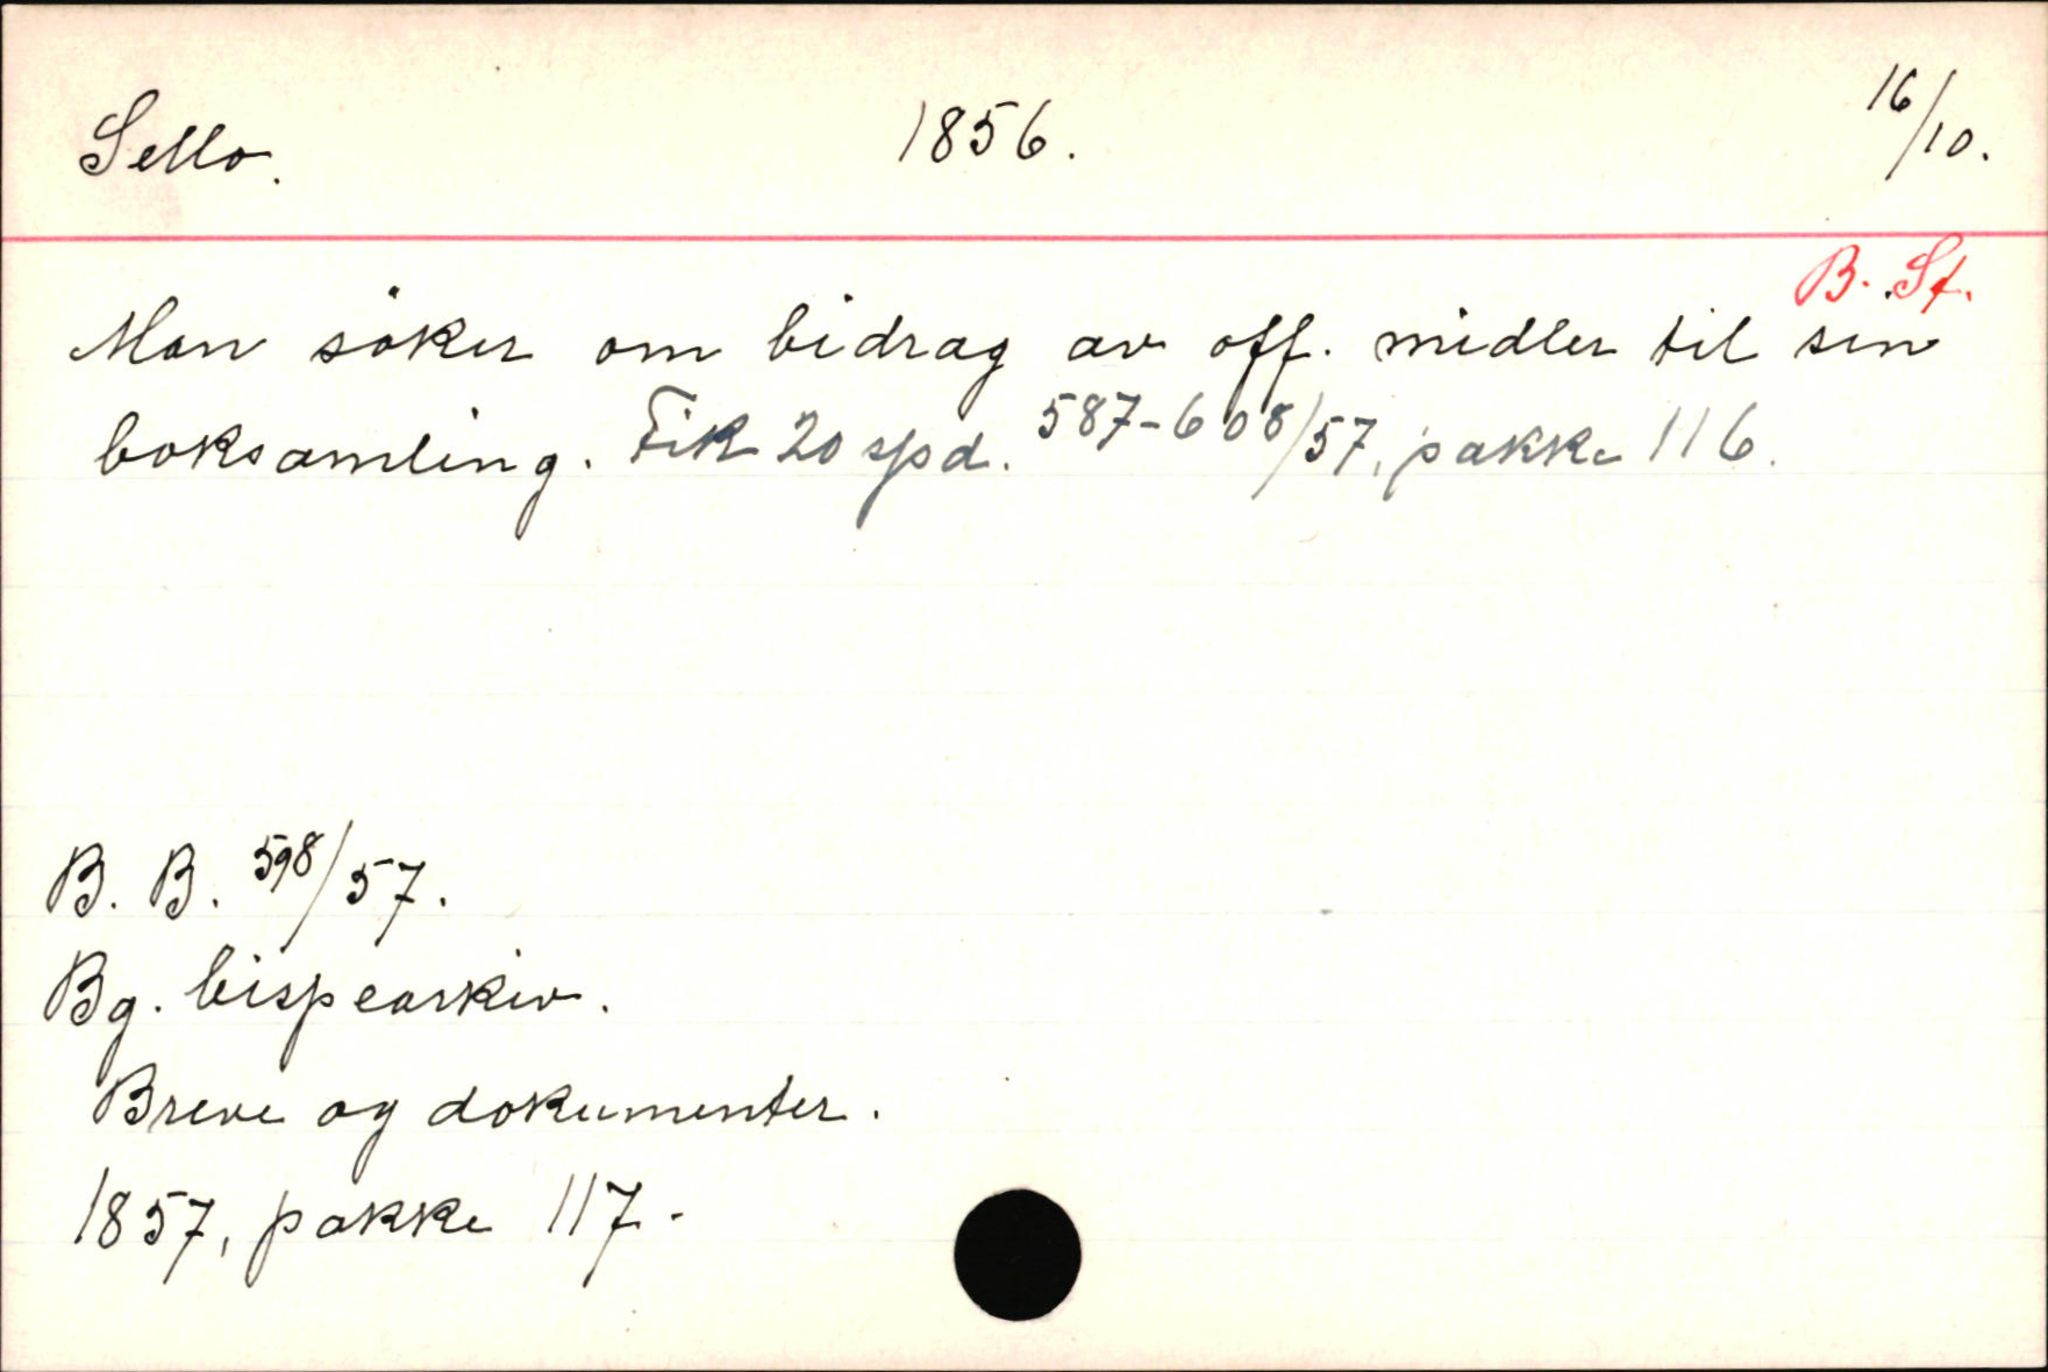 Sello. 1856. 16/10.
B. St.
Man söker om bidrag av off. midler til sin
boksamling. Fik 20 spd. 587-608/57, pakke 116.
B. B. 598/57.
Bg. bispearkiv.
Breve og dokumenter.
1857, pakke 117.